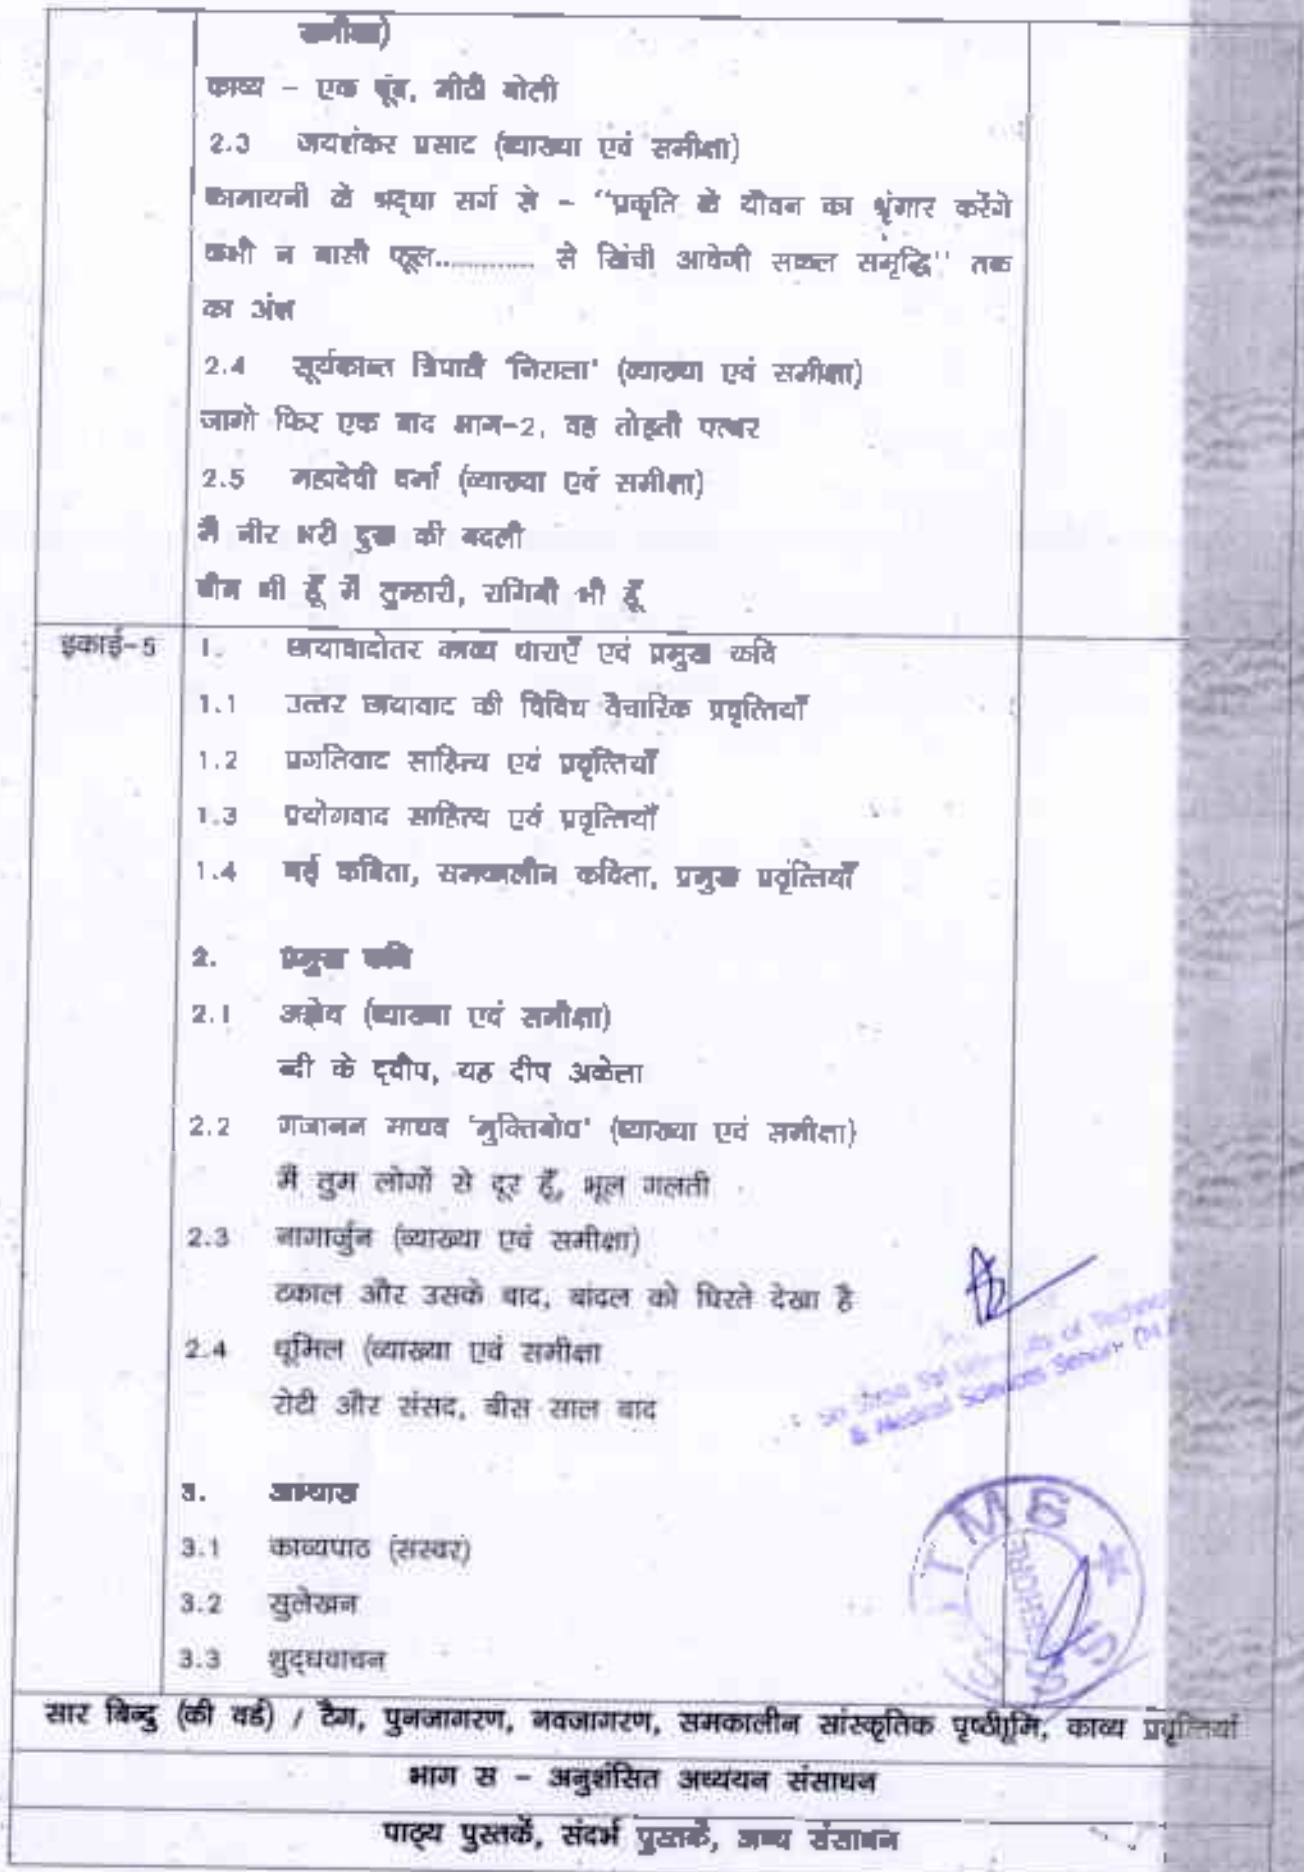 समीक्षा)
काव्य - एक बूंद, मीठी बोली
2.3 जयशंकर प्रसाद (व्याख्या एवं समीक्षा)
कामायनी के श्रद्धा सर्ग से - ''प्रकृति के यौवन का श्रृंगार करेंगे
कभी न बासी फूल............. से खिंची आवेगी सकल समृद्धि'' तक
का अंश
2.4 सूर्यकान्त त्रिपाठी 'निराला' (व्याख्या एवं समीक्षा)
जागो फिर एक बाद भाग-2, वह तोड़ती पत्थर
2.5 महादेवी वर्मा (व्याख्या एवं समीक्षा)
मैं नीर भरी दुख की बदली
बीन भी हूँ मैं तुम्हारी, रागिनी भी हूँ
इकाई-5 1. छायावादोतर काव्य धाराएँ एवं प्रमुख कवि
1.1 उत्तर छायावाद की विविध वैचारिक प्रवृत्तियाँ
1.2 प्रगतिवाद साहित्य एवं प्रवृत्तियाँ
1.3 प्रयोगवाद साहित्य एवं प्रवृत्तियाँ
1.4 नई कविता, समकालीन कविता, प्रमुख प्रवृत्तियाँ
2. प्रमुख कवि
2.1 अज्ञेय (व्याख्या एवं समीक्षा)
न्दी के द्वीप, यह दीप अकेला
2.2 गजानन माधव 'मुक्तिबोध' (व्याख्या एवं समीक्षा)
मैं तुम लोगों से दूर हूँ, भूल गलती
2.3 नागार्जुन (व्याख्या एवं समीक्षा)
टकाल और उसके बाद, बांदल को घिरते देखा है
2.4 धूमिल (व्याख्या एवं समीक्षा
रोटी और संसद, बीस साल बाद
of Technology
& Medical Sciences Sehore (M.P.)
3. अभ्यास
3.1 काव्यपाठ (सस्वर)
3.2 सुलेखन
3.3 शुद्धवाचन
SEHORE
सार बिन्दु (की वर्ड) / टैग, पुनजागरण, नवजागरण, समकालीन सांस्कृतिक पृष्ठीामि, काव्य प्रवृत्तियां
भाग स - अनुशंसित अध्ययन संसाधन
पाठ्य पुस्तकें, संदर्भ पुस्तकें, अन्य संसाधन